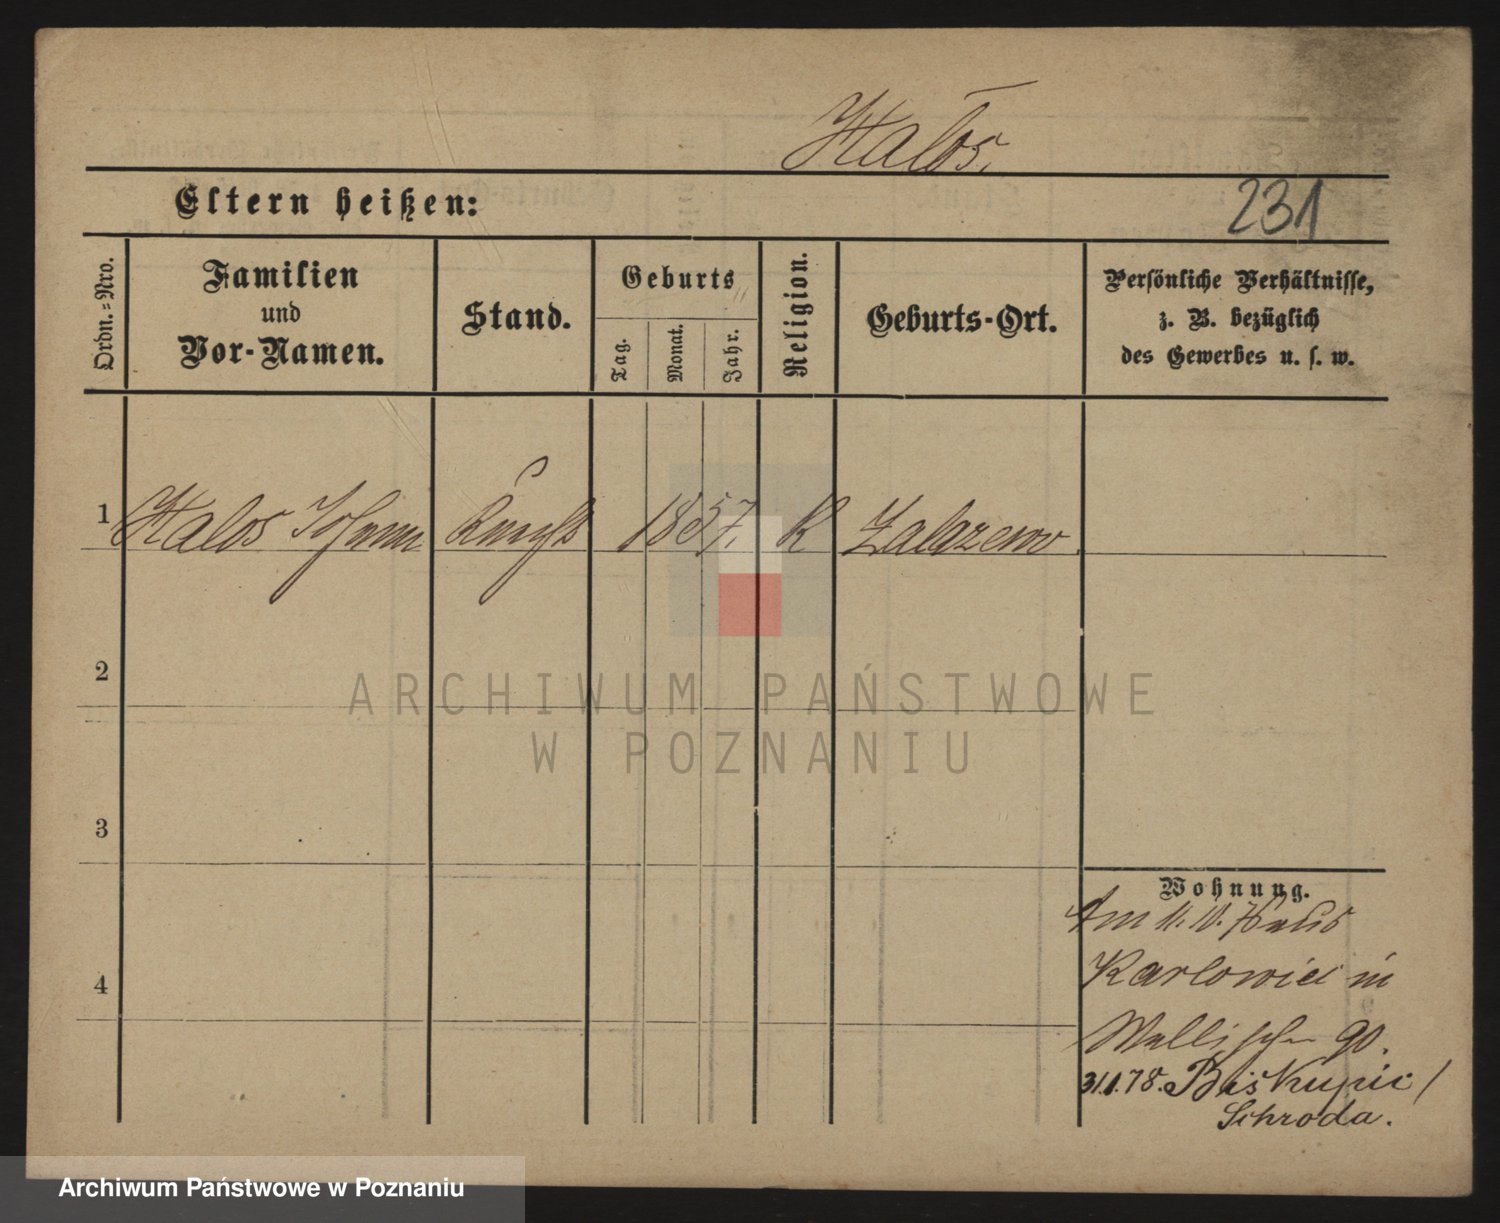 Halos.
Eltern heißen:
231
Ordn.=Nro.
Familien
und
Vor-Namen.
Stand.
Geburts
Tag.
Monat.
Jahr.
Religion.
Geburts-Ort.
Persönliche Verhältnisse,
z. B. bezüglich
des Gewerbes u. s. w.
1 Halos Johann Knecht 1857. K
2
3
4
Wohnung.
Am 11. 10. 76 aus
Karlowiec in
Wallischei 90.
31.1.78. Biskupic /
Schroda.
ARCHIWUM PAŃSTWOWE
W POZNANIU
Archiwum Państwowe w Poznaniu